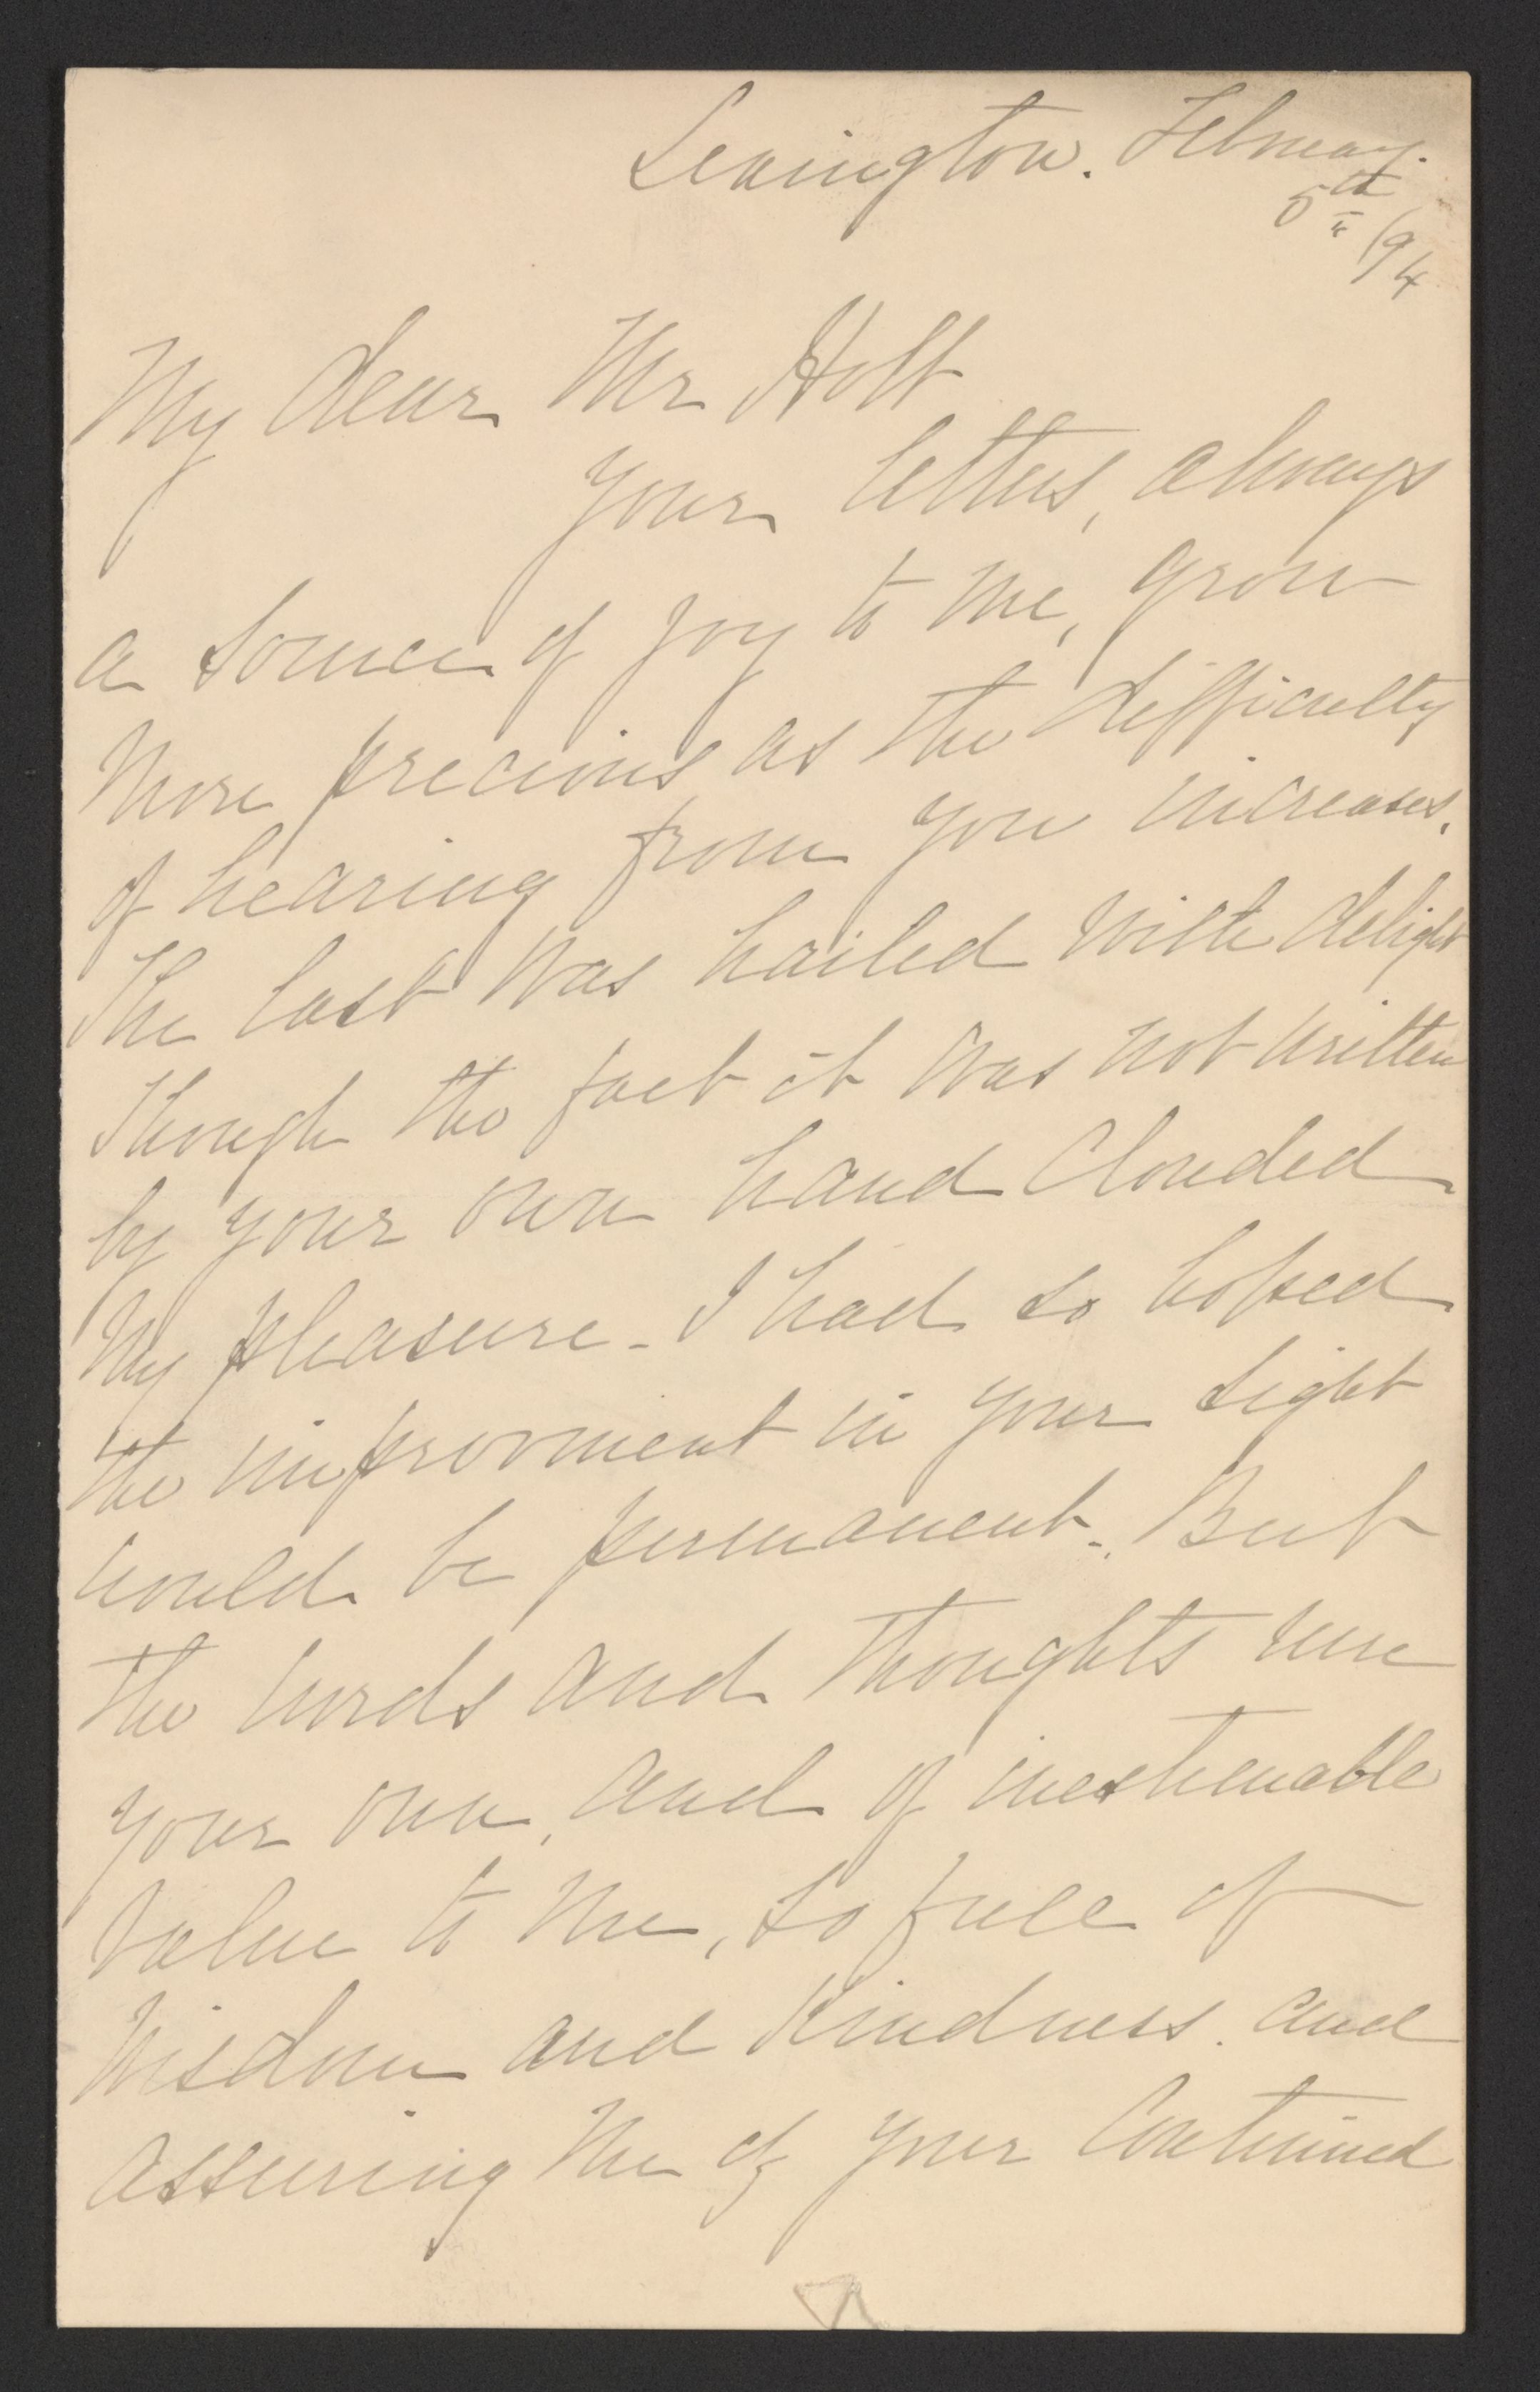 Lexington. February.
5th /94
My dear Mr Holt
Your letters, always
a source of joy to me, grow
more precious as the difficulty
of hearing from you increases.
The last was hailed with delight
though the fact it was not written
by your own hand clouded
my pleasure - I had so hoped
the improvment in your sight
would be permanent -. But
the words and thoughts were
your own, and of inestimable
value to me, so full of
wisdom and kindness. and
assuring me of your continued